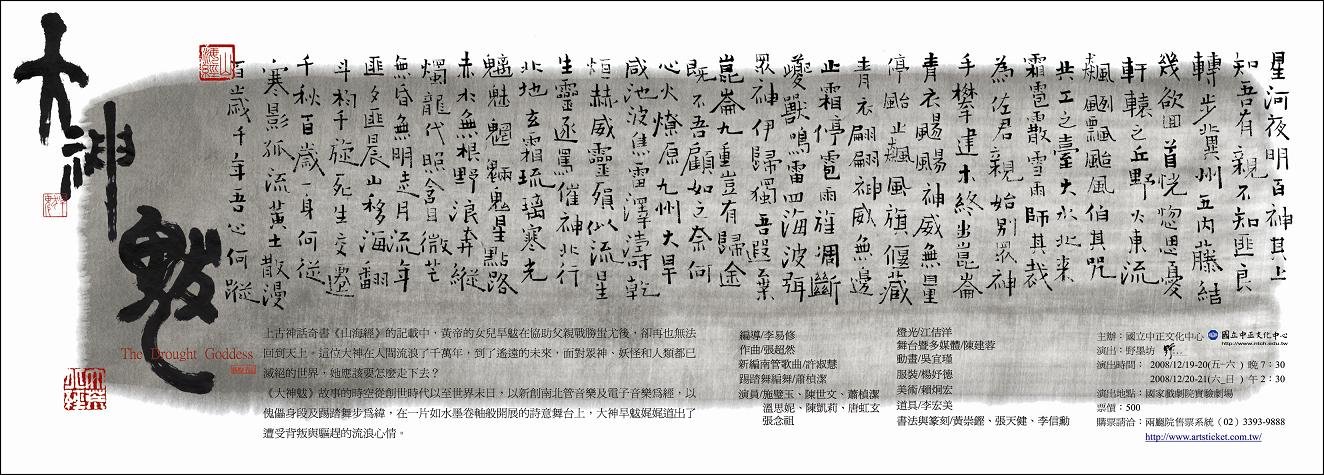 大神魃
山海經
星河夜明百神其上
知吾有親不知匪良
轉步冀州五內藤結
幾欲回首恍惚思憂
軒轅之丘野火東流
飆颲飄颱風伯其咒
共工之臺大水北來
霜雹霰雪雨師其裁
為佐君親始別眾神
手攀建木終出崑崙
青衣颺颺神威無量
停颱止飆風旗偃藏
青衣翩翩神威無邊
止霜停雹雨旌凋斷
夔獸鳴雷四海波弭
眾神伊歸獨吾遐棄
崑崙九重豈有歸途
既不吾顧如之奈何
心火燎原九州大旱
咸池波焦雷澤濤乾
烜赫威靈殞似流星
生靈逐罵催神北行
北地玄霜琉璃寒光
魑魅魍魎鬼星點路
赤水無根野浪奔縱
燭龍代照含目微芒
無昏無明走月流年
匪夕匪晨山移海翻
斗杓千旋死生交遷
千秋百歲一身何從
寒影孤流黃土散漫
百歲千年吾心何蹤
The Drought Goddess
上古神話奇書《山海經》的記載中，黃帝的女兒旱魃在協助父親戰勝蚩尤後，卻再也無法
回到天上，這位大神在人間流浪了千萬年，到了遙遠的未來，面對眾神、妖怪和人類都已
滅絕的世界，她應該要怎麼走下去？
《大神魃》故事的時空從創世時代以至世界末日，以新創南北管音樂及電子音樂為經，以
傀儡身段及踢踏舞步為緯，在一片如水墨卷軸般開展的詩意舞台上，大神旱魃娓娓道出了
遭受背叛與驅趕的流浪心情。
編導/李易修
作曲/張超然
新編南管歌曲/許淑慧
踢踏舞編舞/蕭楨潔
演員/施璧玉、陳世文、蕭楨潔
溫思妮、陳凱莉、唐虹玄
張念祖
燈光/江佶洋
舞台暨多媒體/陳建蓉
動畫/吳宜瑾
服裝/楊妤德
美術/賴炯宏
道具/李宏美
書法與篆刻/黃崇鏗、張天健、李信勳
主辦：國立中正文化中心 國立中正文化中心
http://www.ntch.edu.tw
演出：野墨坊 野...
演出時間： 2008/12/19-20(五-六 ) 晚7：30
2008/12/20-21(六_日 ) 午2：30
演出地點：國家戲劇院實驗劇場
票價：500
購票請洽：兩廳院售票系統（02）3393-9888
http://www.artsticket.com.tw/